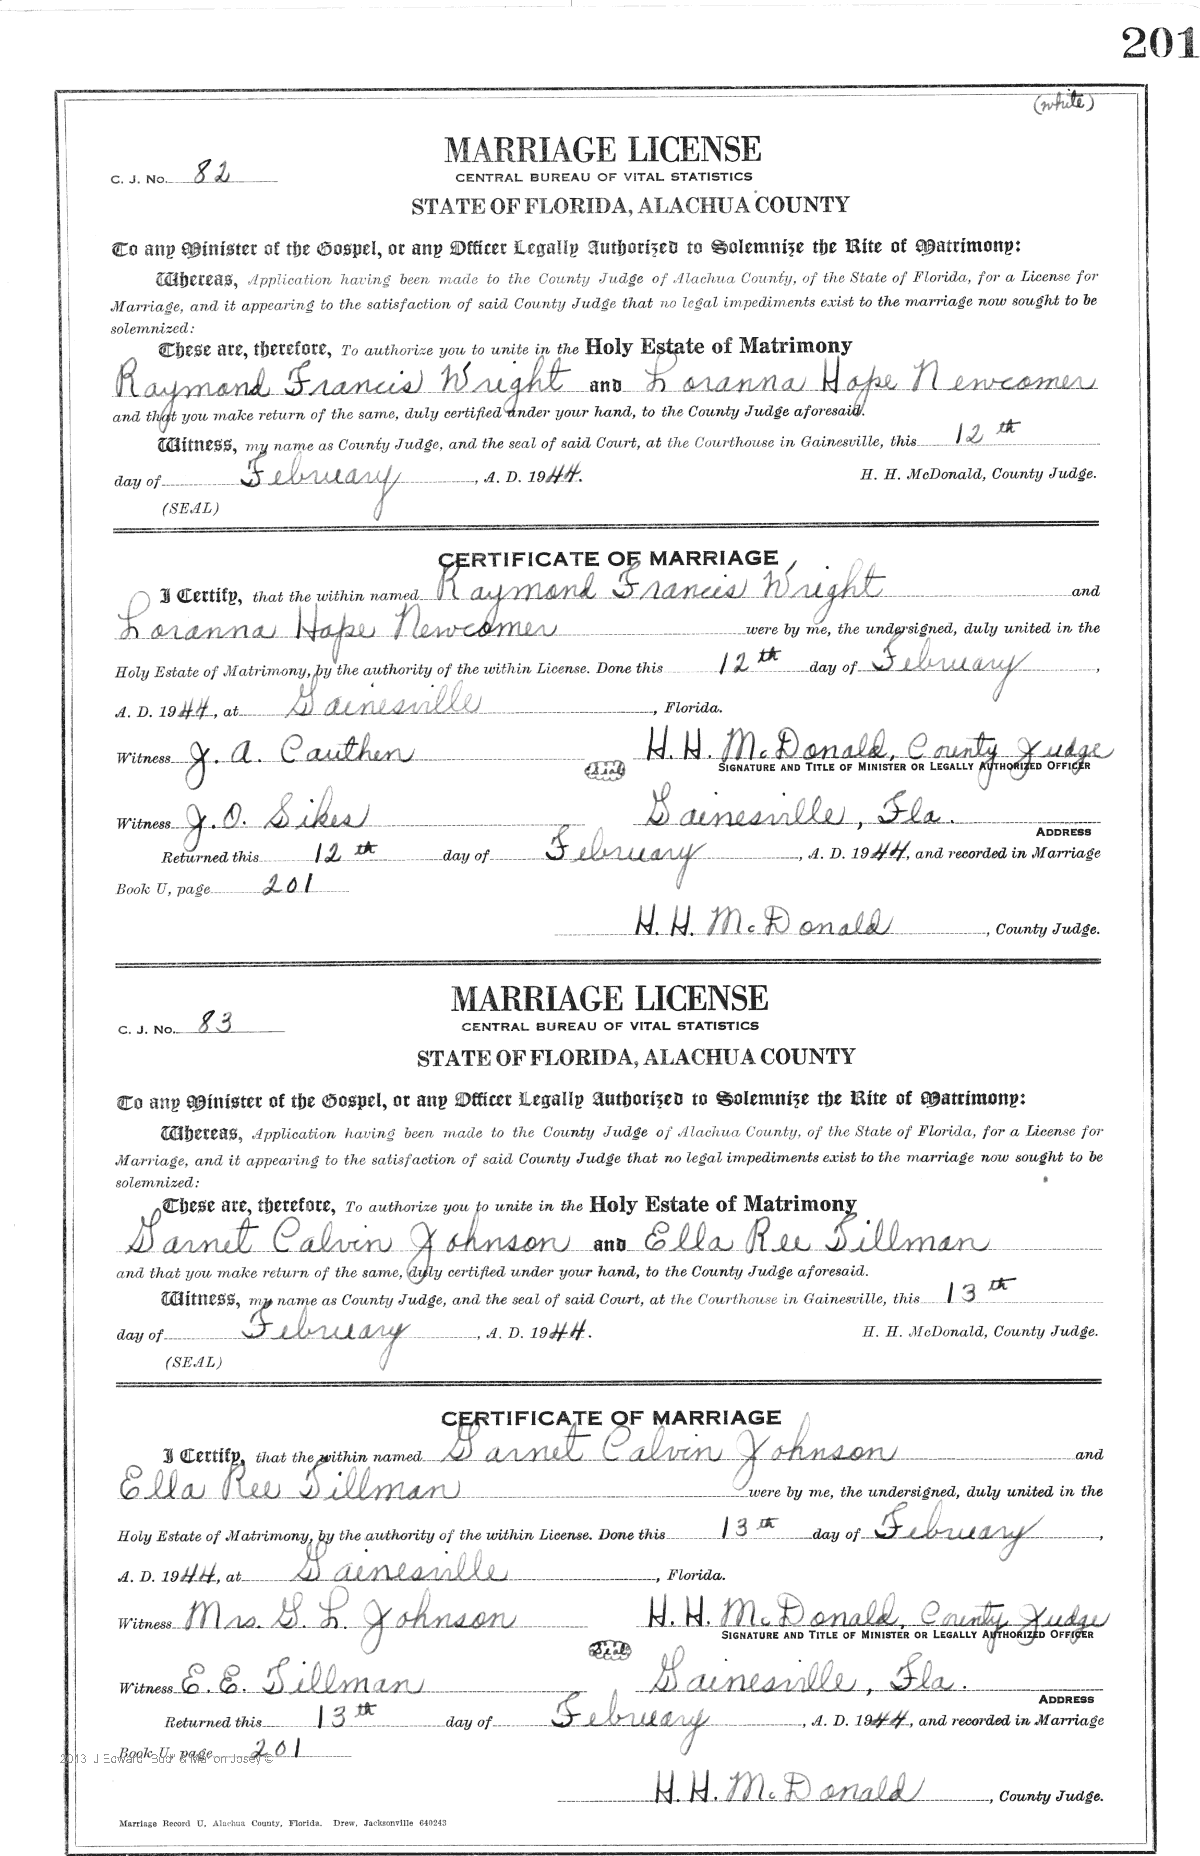 201
(white)
MARRIAGE LICENSE
C. J. No. 82
CENTRAL BUREAU OF VITAL STATISTICS
STATE OF FLORIDA, ALACHUA COUNTY
To any Minister of the Gospel, or any Officer Legally Authorized to Solemnize the Rite of Matrimony:
Whereas, Application having been made to the County Judge of Alachua County, of the State of Florida, for a License for
Marriage, and it appearing to the satisfaction of said County Judge that no legal impediments exist to the marriage now sought to be
solemnized:
These are, therefore, To authorize you to unite in the Holy Estate of Matrimony
Raymond Francis Wright and Loranna Hope Newcomer
and that you make return of the same, duly certified under your hand, to the County Judge aforesaid.
Witness, my name as County Judge, and the seal of said Court, at the Courthouse in Gainesville, this 12th
day of February, A. D. 1944. H. H. McDonald, County Judge.
(SEAL)
CERTIFICATE OF MARRIAGE
I Certify, that the within named Raymond Francis Wright and
Loranna Hope Newcomer were by me, the undersigned, duly united in the
Holy Estate of Matrimony, by the authority of the within License. Done this 12th day of February,
A. D. 1944, at Gainesville, Florida.
Witness J. A. Cauthen H. H. McDonald, County Judge
Seal SIGNATURE AND TITLE OF MINISTER OR LEGALLY AUTHORIZED OFFICER
Witness J. O. Sikes Gainesville, Fla.
ADDRESS
Returned this 12th day of February, A. D. 1944, and recorded in Marriage
Book U, page 201
H. H. McDonald, County Judge.
MARRIAGE LICENSE
C. J. No. 83
CENTRAL BUREAU OF VITAL STATISTICS
STATE OF FLORIDA, ALACHUA COUNTY
To any Minister of the Gospel, or any Officer Legally Authorized to Solemnize the Rite of Matrimony:
Whereas, Application having been made to the County Judge of Alachua County, of the State of Florida, for a License for
Marriage, and it appearing to the satisfaction of said County Judge that no legal impediments exist to the marriage now sought to be
solemnized:
These are, therefore, To authorize you to unite in the Holy Estate of Matrimony
Garnet Calvin Johnson and Ella Ree Tillman
and that you make return of the same, duly certified under your hand, to the County Judge aforesaid.
Witness, my name as County Judge, and the seal of said Court, at the Courthouse in Gainesville, this 13th
day of February, A. D. 1944. H. H. McDonald, County Judge.
(SEAL)
CERTIFICATE OF MARRIAGE
I Certify, that the within named Garnet Calvin Johnson and
Ella Ree Tillman were by me, the undersigned, duly united in the
Holy Estate of Matrimony, by the authority of the within License. Done this 13th day of February,
A. D. 1944, at Gainesville, Florida.
Witness Mrs. G. L. Johnson H. H. McDonald, County Judge
Seal SIGNATURE AND TITLE OF MINISTER OR LEGALLY AUTHORIZED OFFICER
Witness E. E. Tillman Gainesville, Fla.
ADDRESS
Returned this 13th day of February, A. D. 1944, and recorded in Marriage
Book U, page 201
2013 J Edward "Bud" & Marion Josey ©
H. H. McDonald, County Judge.
Marriage Record U, Alachua County, Florida. Drew, Jacksonville 640243